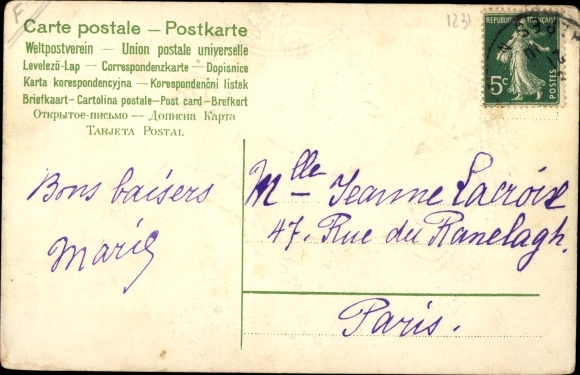 F
1231
Carte postale – Postkarte
Weltpostverein — Union postale universelle
Levelező-Lap — Correspondenzkarte — Dopisnice
Karta korespondencyjna – Korespondenční listek
Briefkaart – Cartolina postale – Post card – Brefkort
Открытое-письмо — Дописна Карта
Tarjeta Postal
REPUBLIQUE FRANÇAISE
5c
POSTES
Bons baisers
Marie
Mlle Jeanne Lacroix
47. Rue du Ranelagh.
Paris.